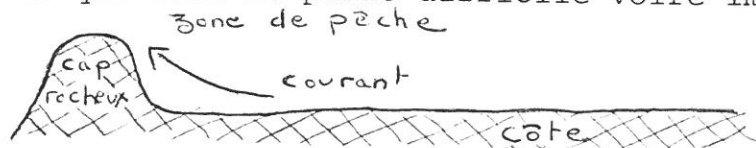 zone de pêche
cap
rocheux
courant
côte